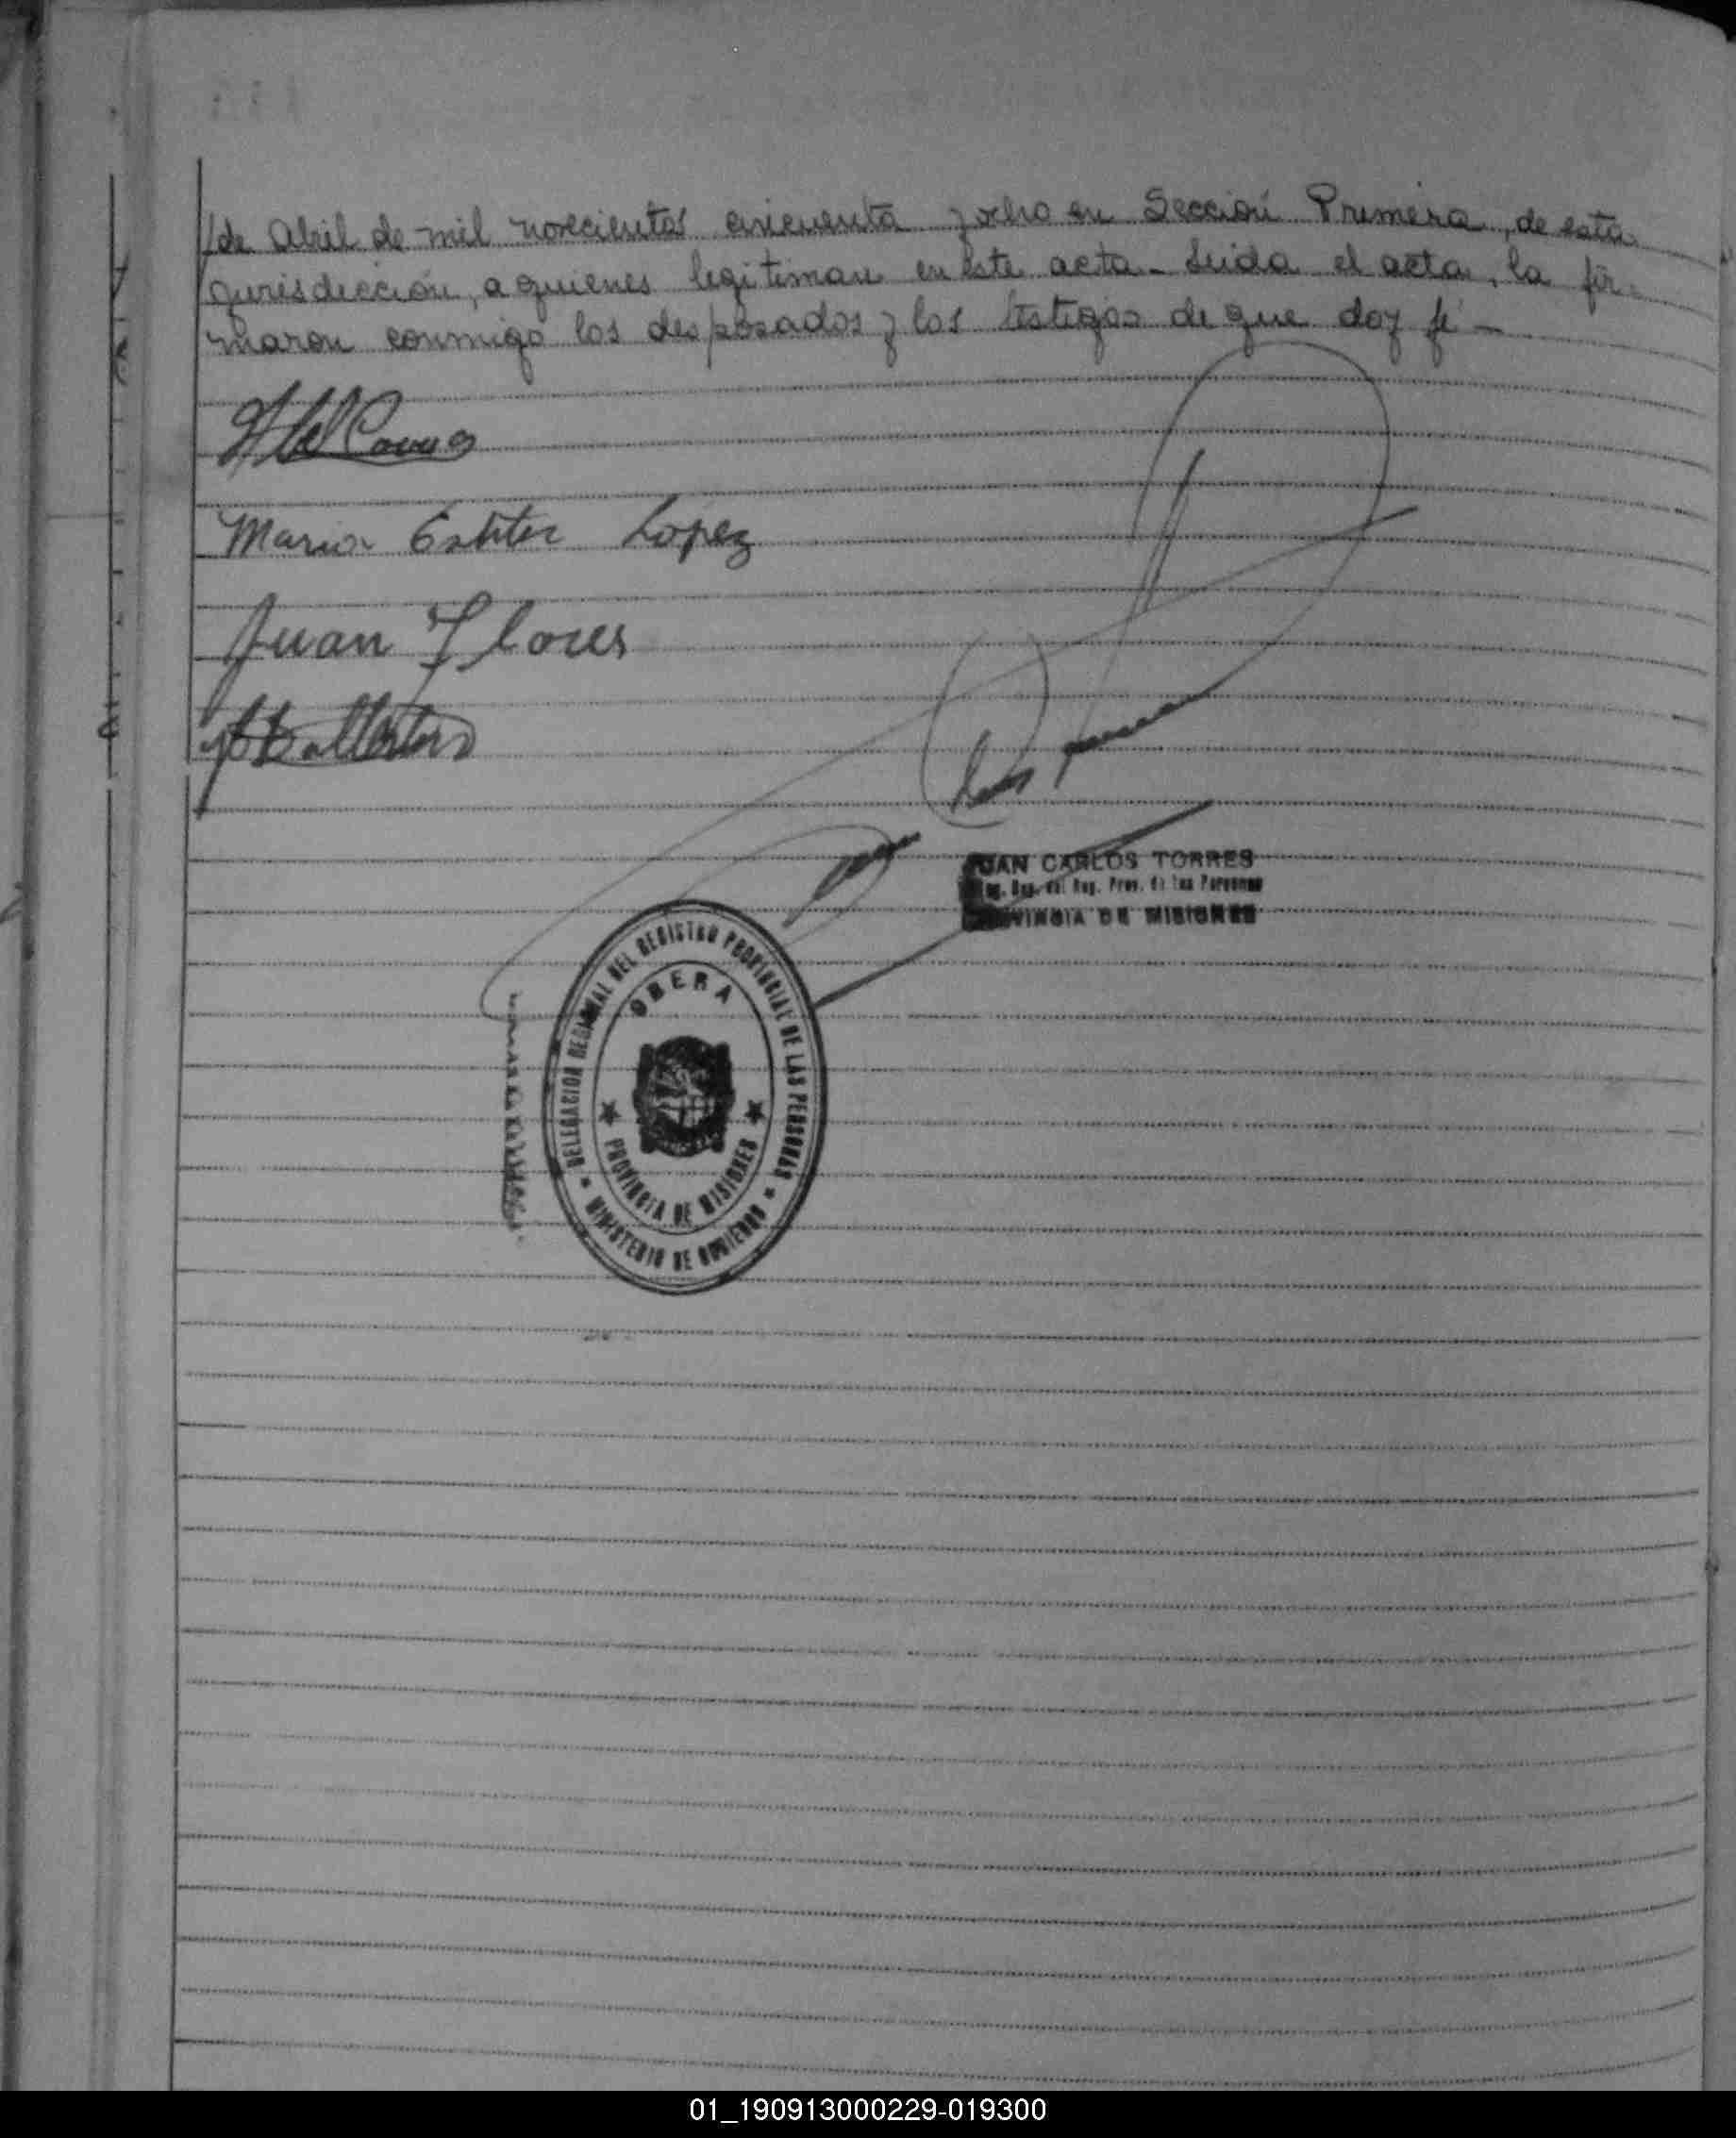 /de Abril de mil novecientos cincuenta y ocho en Sección Primera, de esta
jurisdicción, a quienes legitiman en este acta - Leida el acta, la fir-
maron conmigo los desposados y los testigos de que doy fé -
Maria Esther Lopez
Juan Flores
JUAN CARLOS TORRES
Reg. Prov. de las Personas
PROVINCIA DE MISIONES
DELEGACION REGIONAL DEL REGISTRO PROVINCIAL DE LAS PERSONAS
OBERA
PROVINCIA DE MISIONES
MINISTERIO DE GOBIERNO
01_190913000229-019300